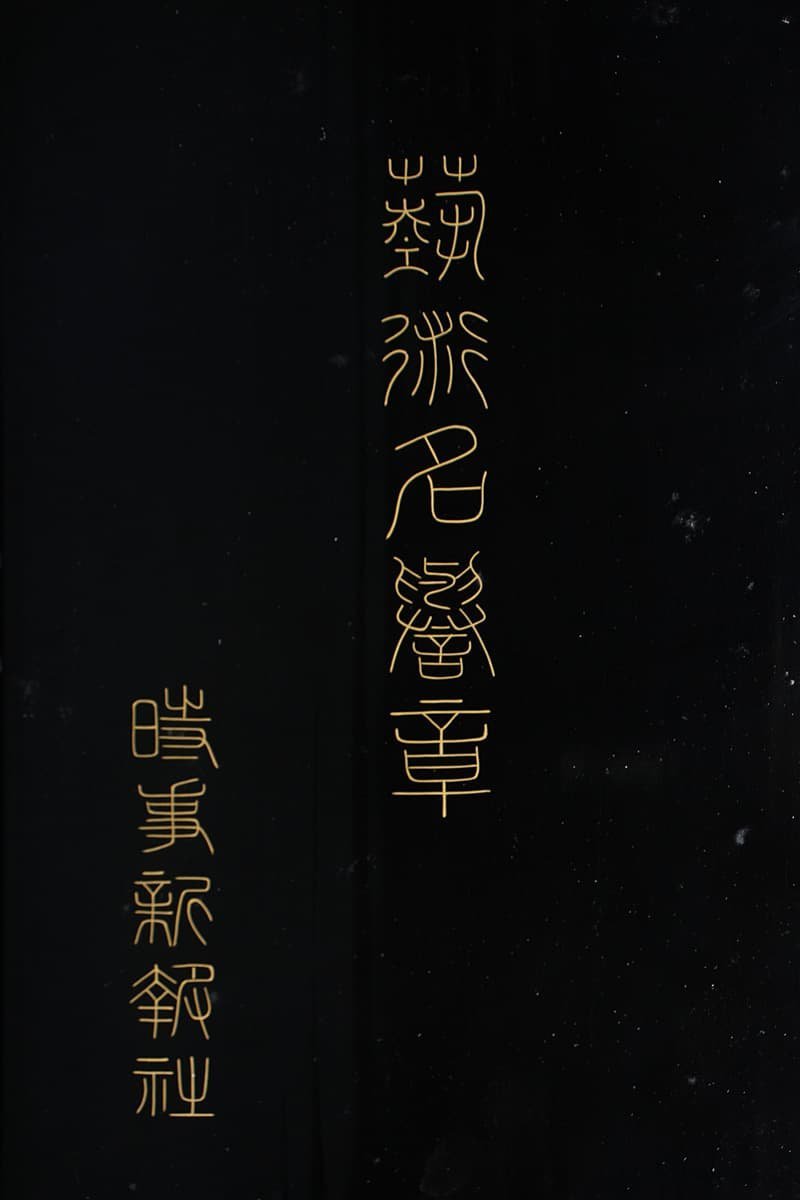 藝術名譽章
時事新報社